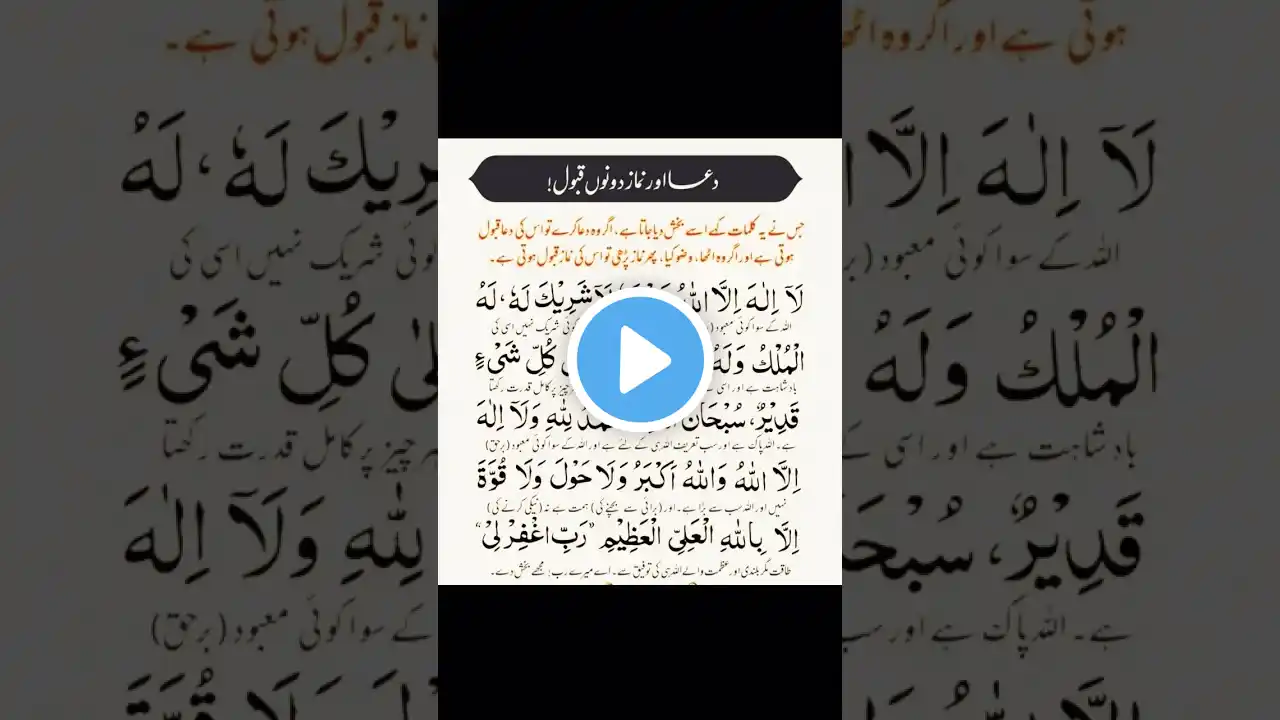 دعا اور نماز دونوں قبول!
جس نے یہ کلمات کہے اسے بخش دیا جاتا ہے، اگر وہ دعا کرے تو اس کی دعا قبول
ہوتی ہے اور اگر وہ اٹھا، وضو کیا، پھر نماز پڑھی تو اس کی نماز قبول ہوتی ہے۔
لَآ اِلٰهَ اِلَّا اللهُ لَآ شَرِيْكَ لَهٗ، لَهُ
اللہ کے سوا کوئی معبود کوئی شریک نہیں اسی کی
الْمُلْكُ وَلَهُ كُلِّ شَىْءٍ
بادشاہت ہے اور اسی چیز پر کامل قدرت رکھتا
قَدِيْرٌ، سُبْحَانَ لِلّٰهِ وَلَآ اِلٰهَ
ہے۔ اللہ پاک ہے اور سب تعریف اللہ ہی کے لئے ہے اور اللہ کے سوا کوئی معبود (برحق)
اِلَّا اللهُ وَاللهُ اَكْبَرُ وَلَا حَوْلَ وَلَا قُوَّةَ
نہیں اور اللہ سب سے بڑا ہے۔ اور (برائی سے بچنے کی) ہمت ہے نہ (نیکی کرنے کی)
اِلَّا بِاللهِ الْعَلِىِّ الْعَظِيْمِ "رَبِّ اغْفِرْ لِىْ"
طاقت مگر بلندی اور عظمت والے اللہ ہی کی توفیق سے۔ اے میرے رب! مجھے بخش دے۔